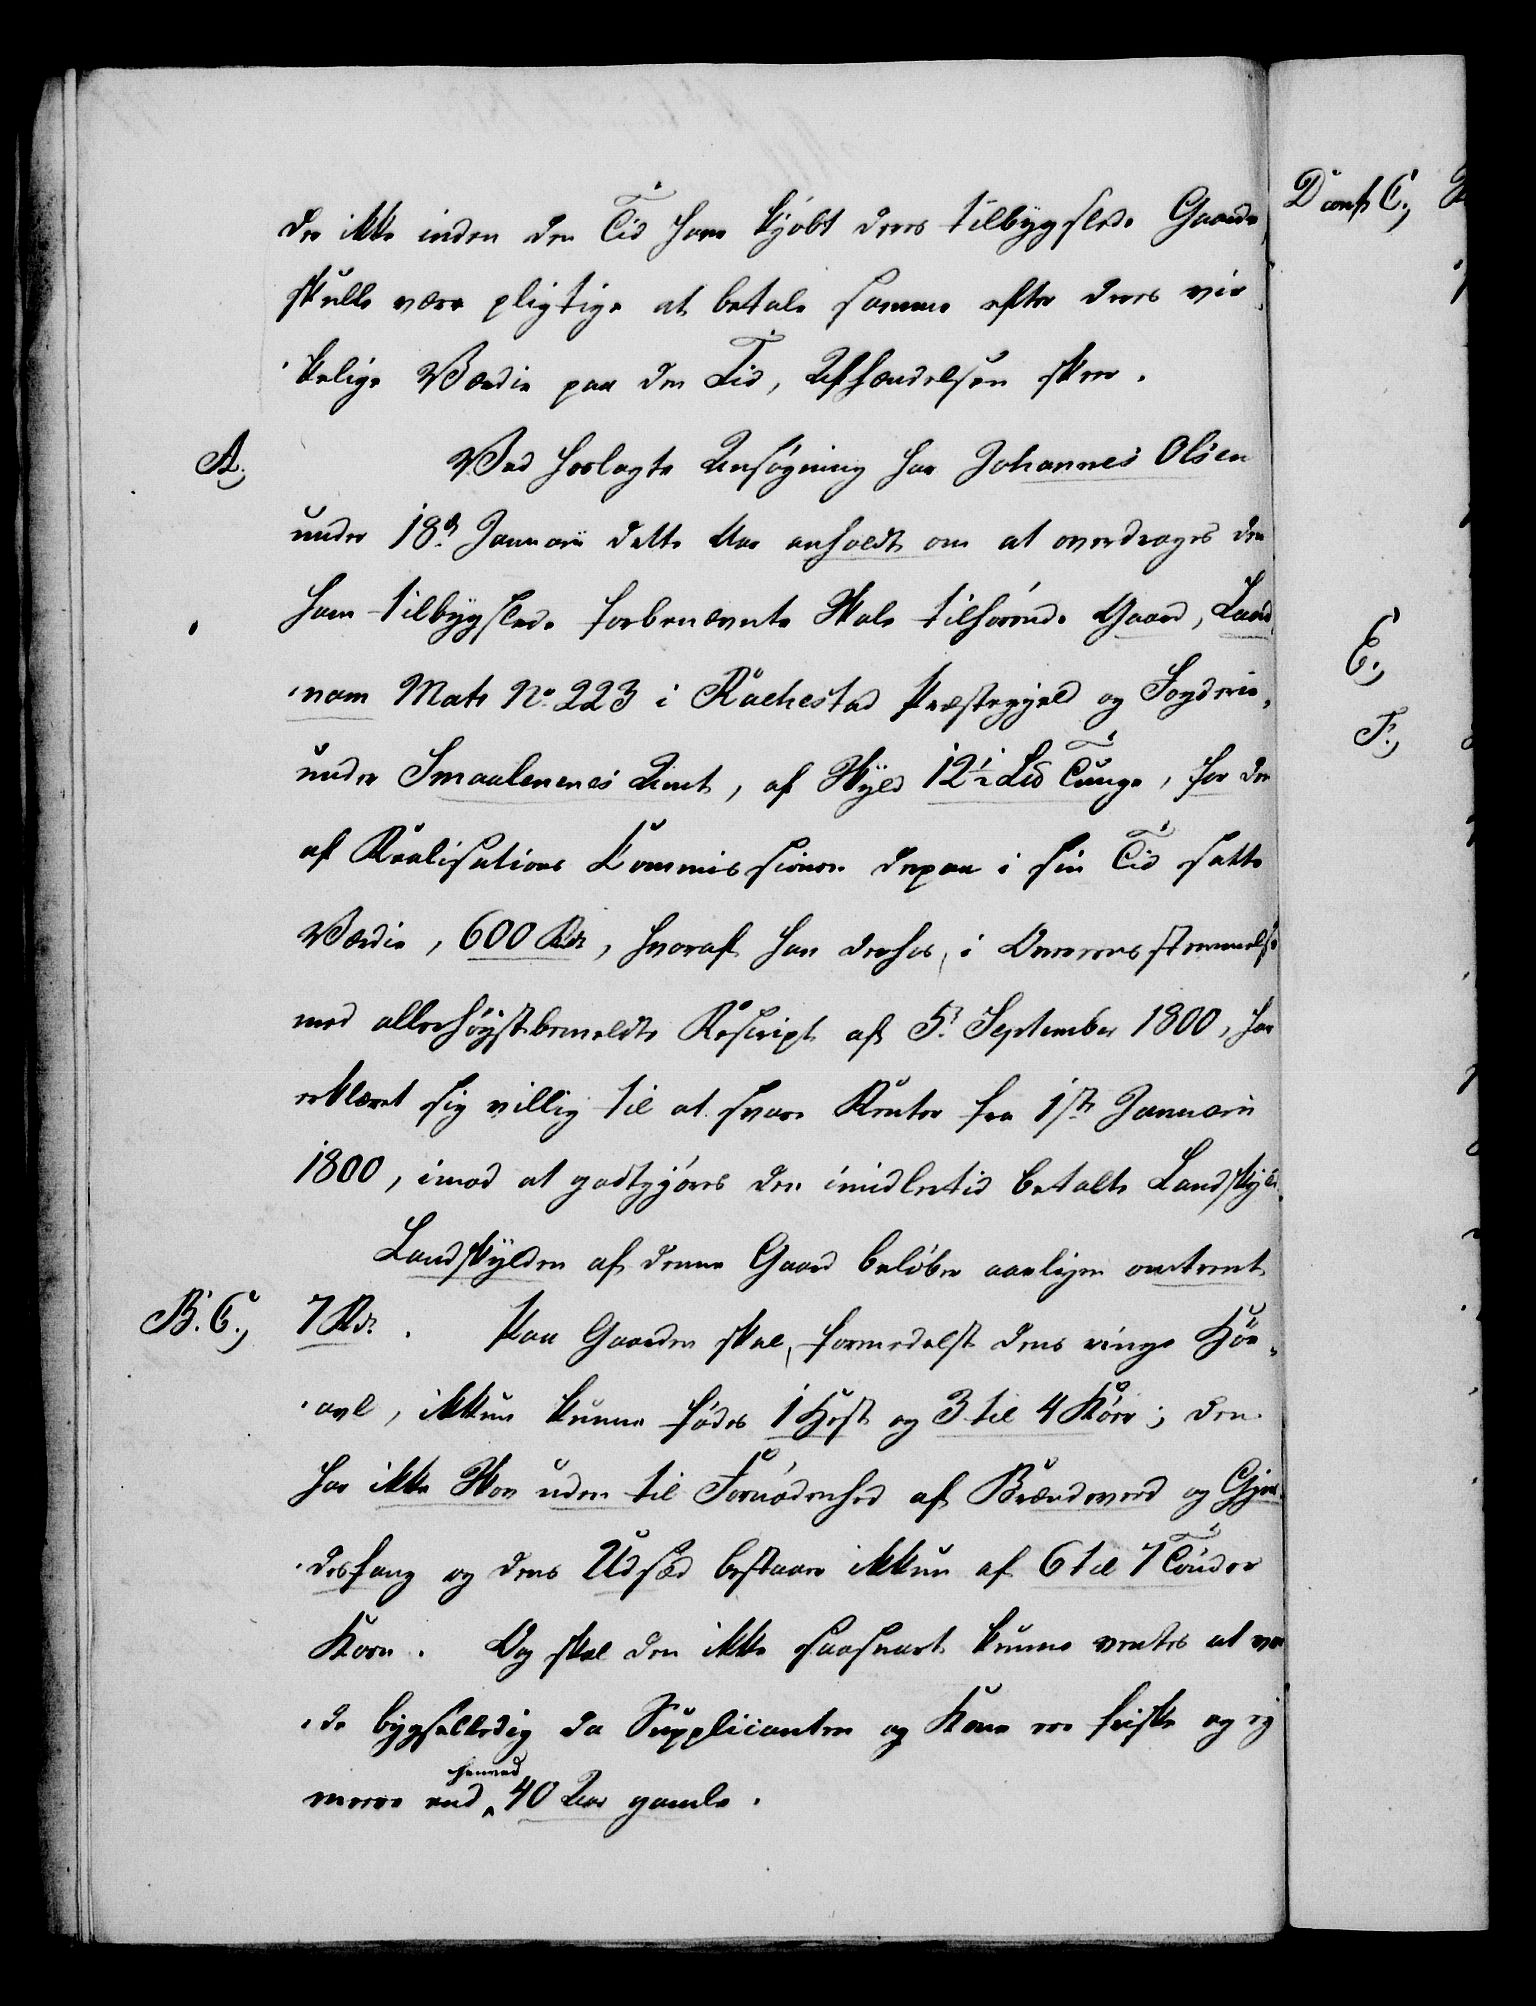 der ikke inden den Tid have kjöbt deres tilbygslede Gaarde,
skulle være pligtige at betale samme efter deres vir-
kelige Værdie paa den Tid, Afhændelsen skeer.
A.) Ved hoslagte Ansögning har Johannes Olsen
under 18de Januarii dette Aar anholdt om at overdrages den
ham tilbygslede forbenævnte Skole tilhörende Gaard, Land-
nom Matr No. 223 i Rachestad Præstegjeld og Fogderie,
under Smaalenenes Amt, af Skyld 12½ Lisp Tunge, for den
af Realisations Kommissionen derpaa i sin Tid satte
Værdie, 600 Rdr, hvoraf han derhos, i Overeensstemmelse
med allerhöystbemeldte Rescript af 5te September 1800, har
erklæret sig villig til at svare Renter fra 1ste Januarii
1800, imod at godtgjöres den imidlertid betalte Landskyld.
Landskylden af denne Gaard belöber aarligen omtrent
B. C.) 7 Rdr. Paa Gaarden skal, formedelst dens ringe Höe-
avl, ikkun kunne födes 1 Hest og 3 til 4 Köer; den
har ikke Skov uden til Fornödenhed af Brændeveed og Gjer-
desfang og dens Udsæd bestaaer ikkun af 6 til 7 Tönder
Korn. Og skal den ikke saasnart kunne ventes at vor-
de bygselledig da Supplicanten og Kone ere friske og ej
mere end henved 40 Aar gamle.
D conf C.)
E.)
F.)